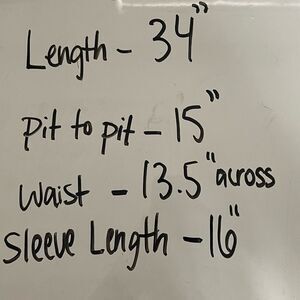 Length - 34"
pit to pit - 15"
waist - 13.5" across
Sleeve Length - 16"